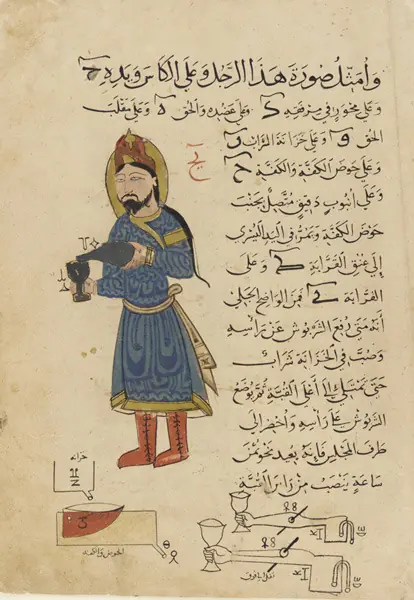 وأمثل صورة هذا الرجل وعلى الكاس ويده
وعلى محور في مرفقه وعلى عضده والحق ه وعلى مقلب
الحق و وعلى خزانة الشراب
وعلى حوض الكفة والكفة ح
وعلى أنبوب دقيق متصل بجنب
حوض الكفة ويمر في اليد اليسرى
إلى عنق القرابة وعلى
القرابة فمن الواضح الجلي
أنه متى رفع الشربوش عن راسه
وصب في الخزانة شراب
حتى تمتلي إلى أعلى القبة ثم يوضع
الشربوش على راسه وأحضر إلى
طرف المجلس فإنه بعيد نحو من
ساعة ينصب من
خزانه
الحوض والكفه